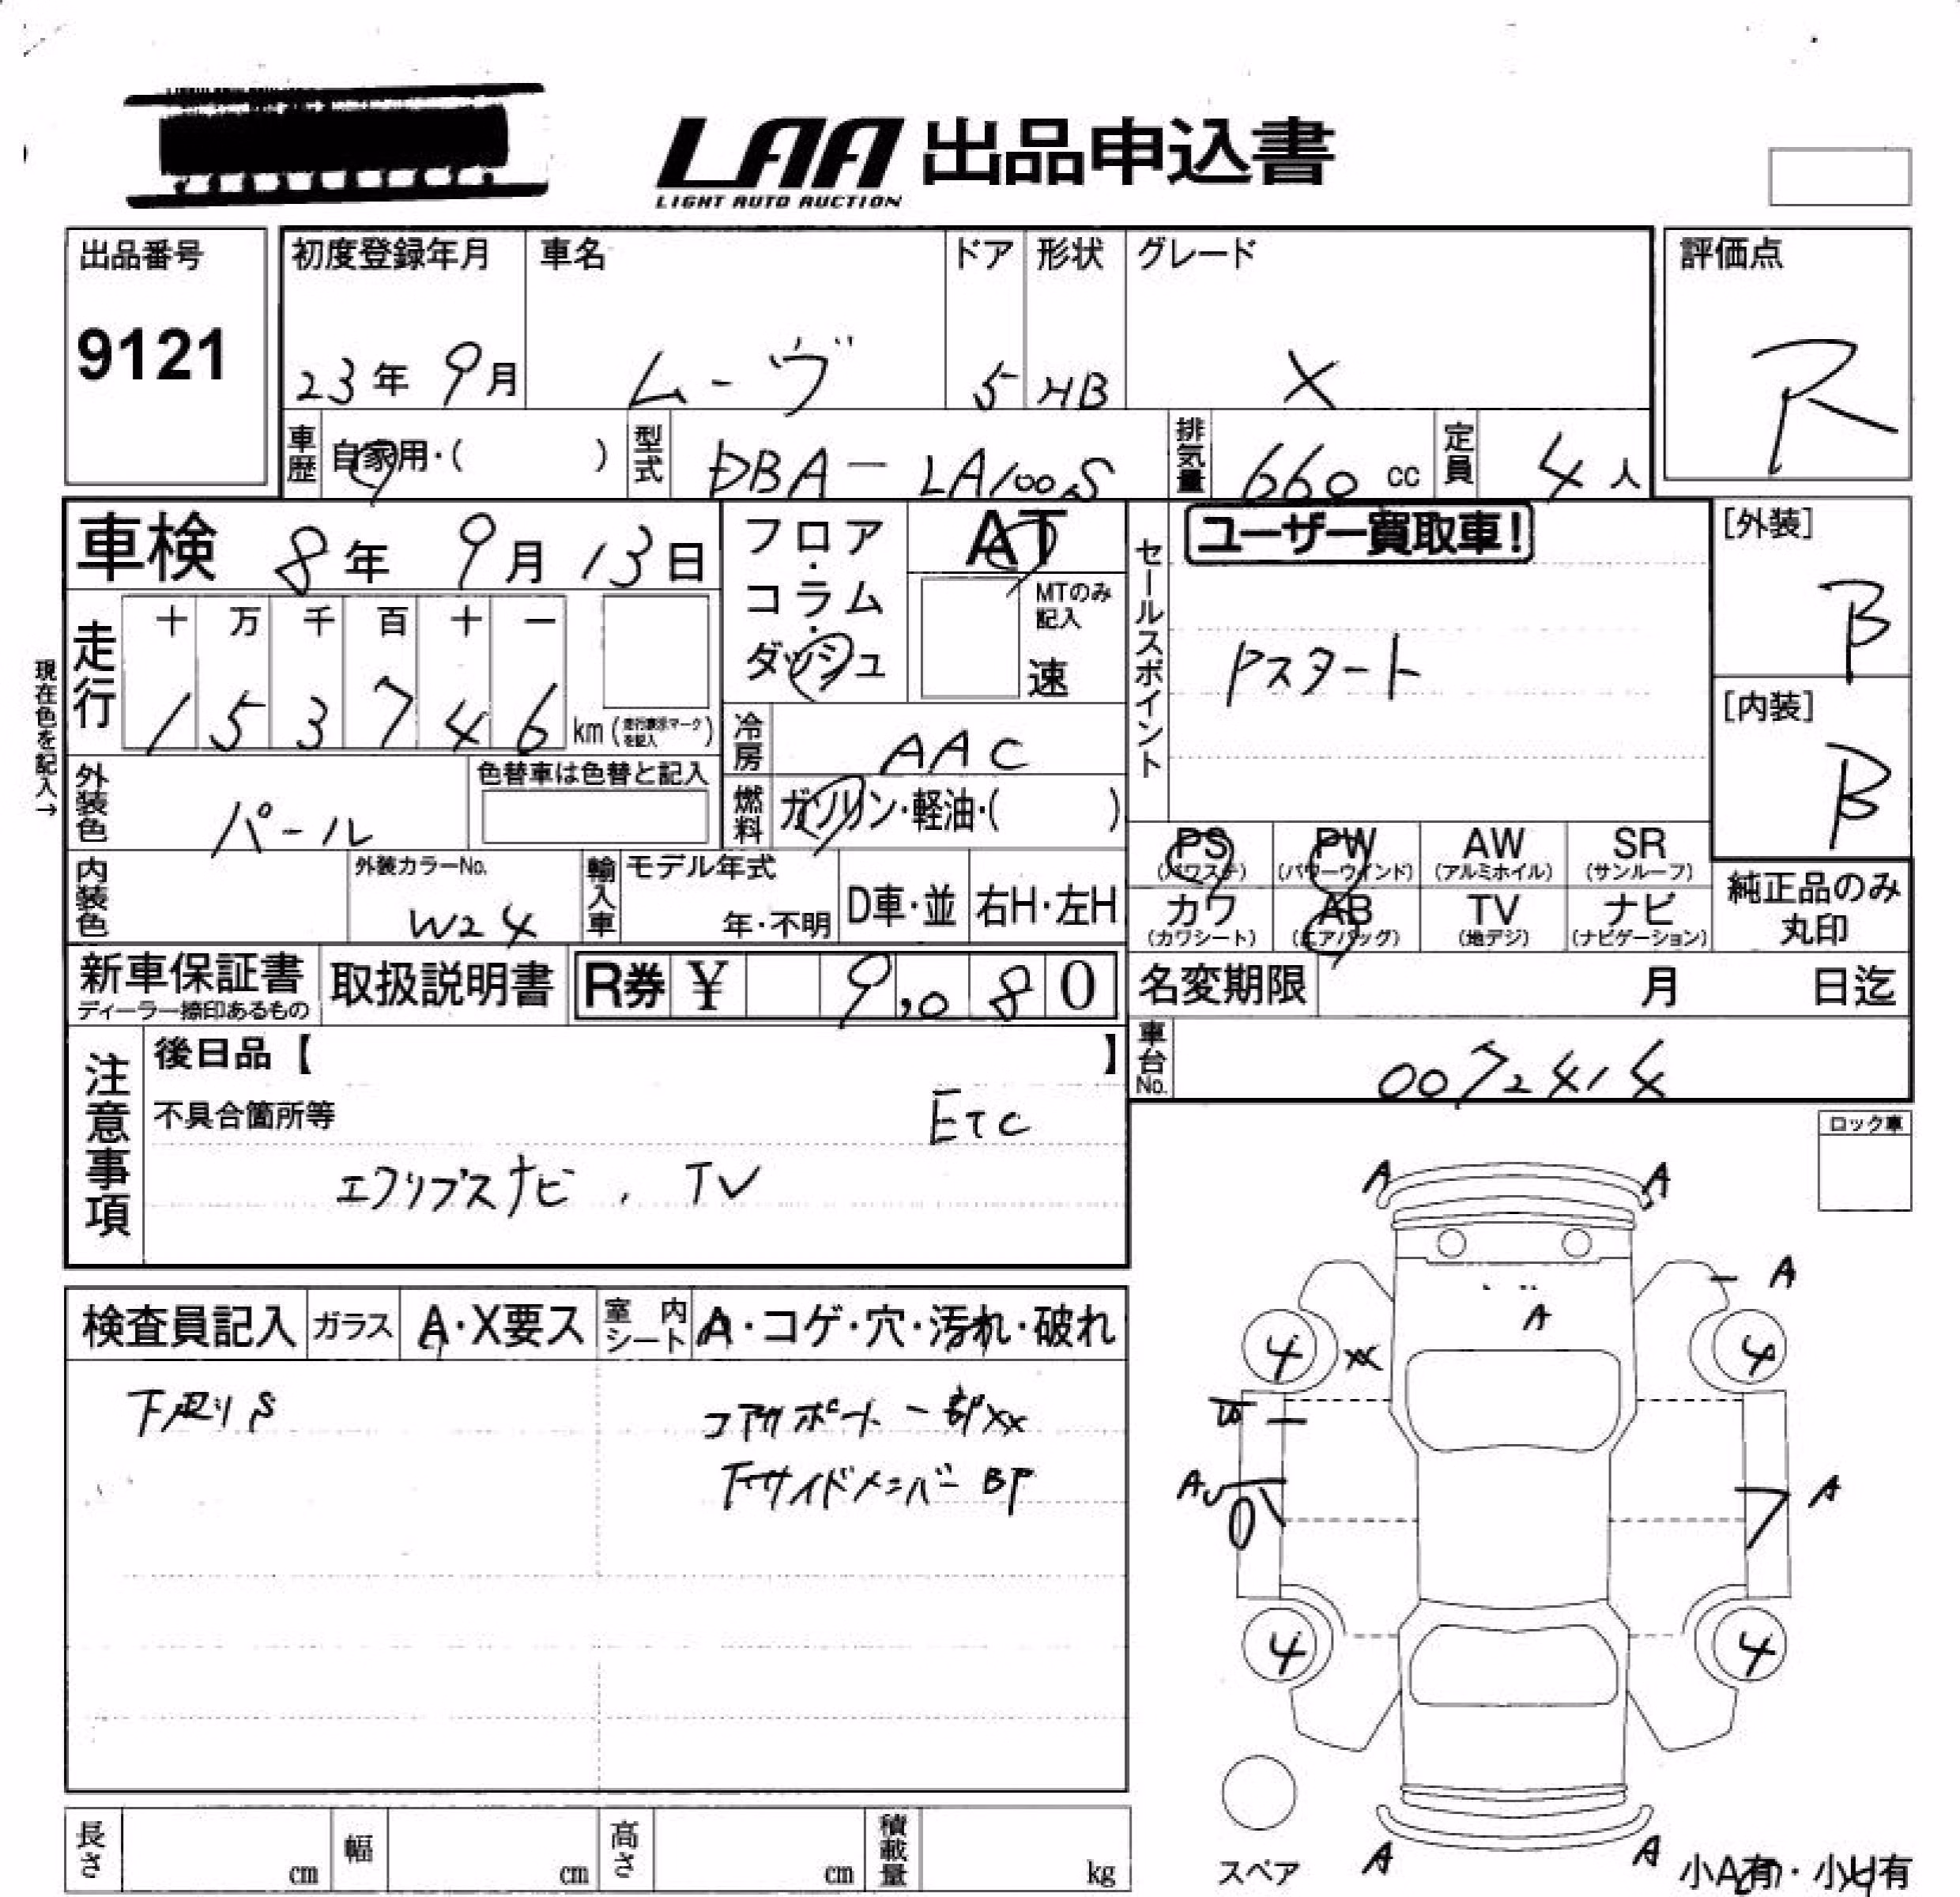 LAA 出品申込書
LIGHT AUTO AUCTION
出品番号
9121
初度登録年月 車名 ドア 形状 グレード
23年 9月 ムーヴ 5 HB X
評価点
R
車歴 自家用・( ) 型式 DBA-LA100S 排気量 660cc 定員 4人
車検 8年 9月 13日
フロア・コラム・ダッシュ
AT
MTのみ記入
速
セールスポイント
ユーザー買取車!
Pスタート
[外装]
B
[内装]
B
現在色を記入→
走行 十 万 千 百 十 一
1 5 3 7 4 6 km(走行表示マークを記入)
冷房 AAC
燃料 ガソリン・軽油・( )
外装色 パール
色替車は色替と記入
内装色
外装カラーNo.
W24
輸入車 モデル年式
年・不明 D車・並 右H・左H
PS (パワステ) PW (パワーウインド) AW (アルミホイル) SR (サンルーフ)
カワ (カワシート) AB (エアバッグ) TV (地デジ) ナビ (ナビゲーション)
純正品のみ丸印
新車保証書
ディーラー捺印あるもの
取扱説明書 R券 ¥ 9,080
名変期限 月 日迄
車台No. 0072414
注意事項
後日品【 】
不具合箇所等 ETC
エクリプスナビ, TV
ロック車
検査員記入 ガラス A・X要ス 室内シート A・コゲ・穴・汚れ・破れ
コアサポート一部XX
下サイドメンバー BP
A A
A
A
4 XX 4
A
A
4 4
スペア
A A
小A有・小U有
長さ cm 幅 cm 高さ cm 積載量 kg